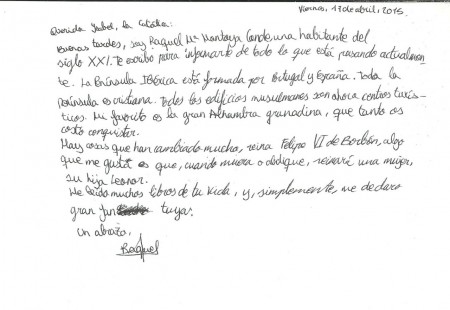 Viernes, 17 de abril, 2015.
Querida Isabel, la Católica:
Buenas tardes, soy Raquel Mª Montoya Conde, una habitante del
siglo XXI. Te escribo para informarte de todo lo que está pasando actualmen
te. La Península Ibérica está formada por Portugal y España. Toda la
península es cristiana. Todos los edificios musulmanes son ahora centros turís-
ticos. Mi favorito es la gran Alhambra granadina, que tanto os
costó conquistar.
Hay cosas que han cambiado mucho, reina Felipe VI de Borbón, algo
que me gusta es que, cuando muera o abdique, reinará una mujer,
su hija Leonor.
He leído muchos libros de tu vida, y, simplemente, me declaro
gran fan tuya.
Un abrazo,
Raquel